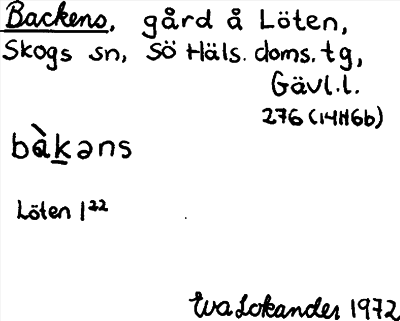 Backens, gård å Löten,
Skogs sn, Sö Häls. doms. tg,
Gävl.l.
276 (14H6b)
bàkəns
Löten 1²²
Eva Lokander 1972